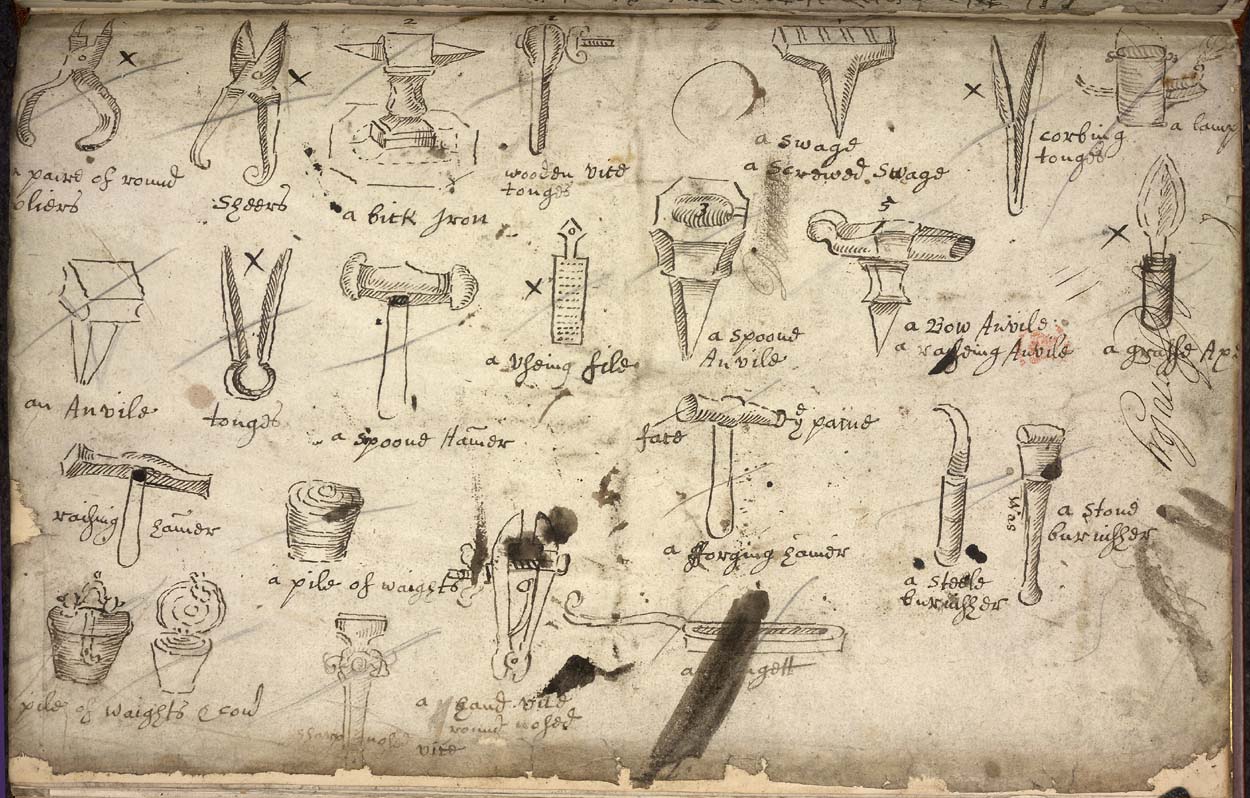 2
a paire of round
pliers
Sheers
a bick Iron
wooden vice
tonges
a Swage
a Screwed Swage
corbing
tonges
a lamp
3
5
an Anvile
tonges
a spoone Hamer
a Vheing file
a spoone
Anvile
a Bow Anvile
a raiseing Anvile
a grasse
raising hamer
a pile of waights
face
ye paine
a forging hamer
a Steele
burnisher
Was
a Stone
burnisher
pile of waights
a hand vice
round nosed
sharp nosed
vice
a